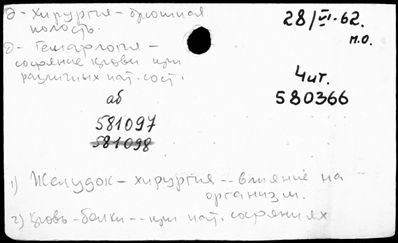 д - Хирургия - брюшная
полость.
28/VI-62.
м.о.
д - Гематология -
состояние крови при
различных пат. сост.
Чит.
580366
аб
581097
581098
1) Желудок - хирургия -- влияние на
организм.
2) Кровь - белки -- при пат. состояниях